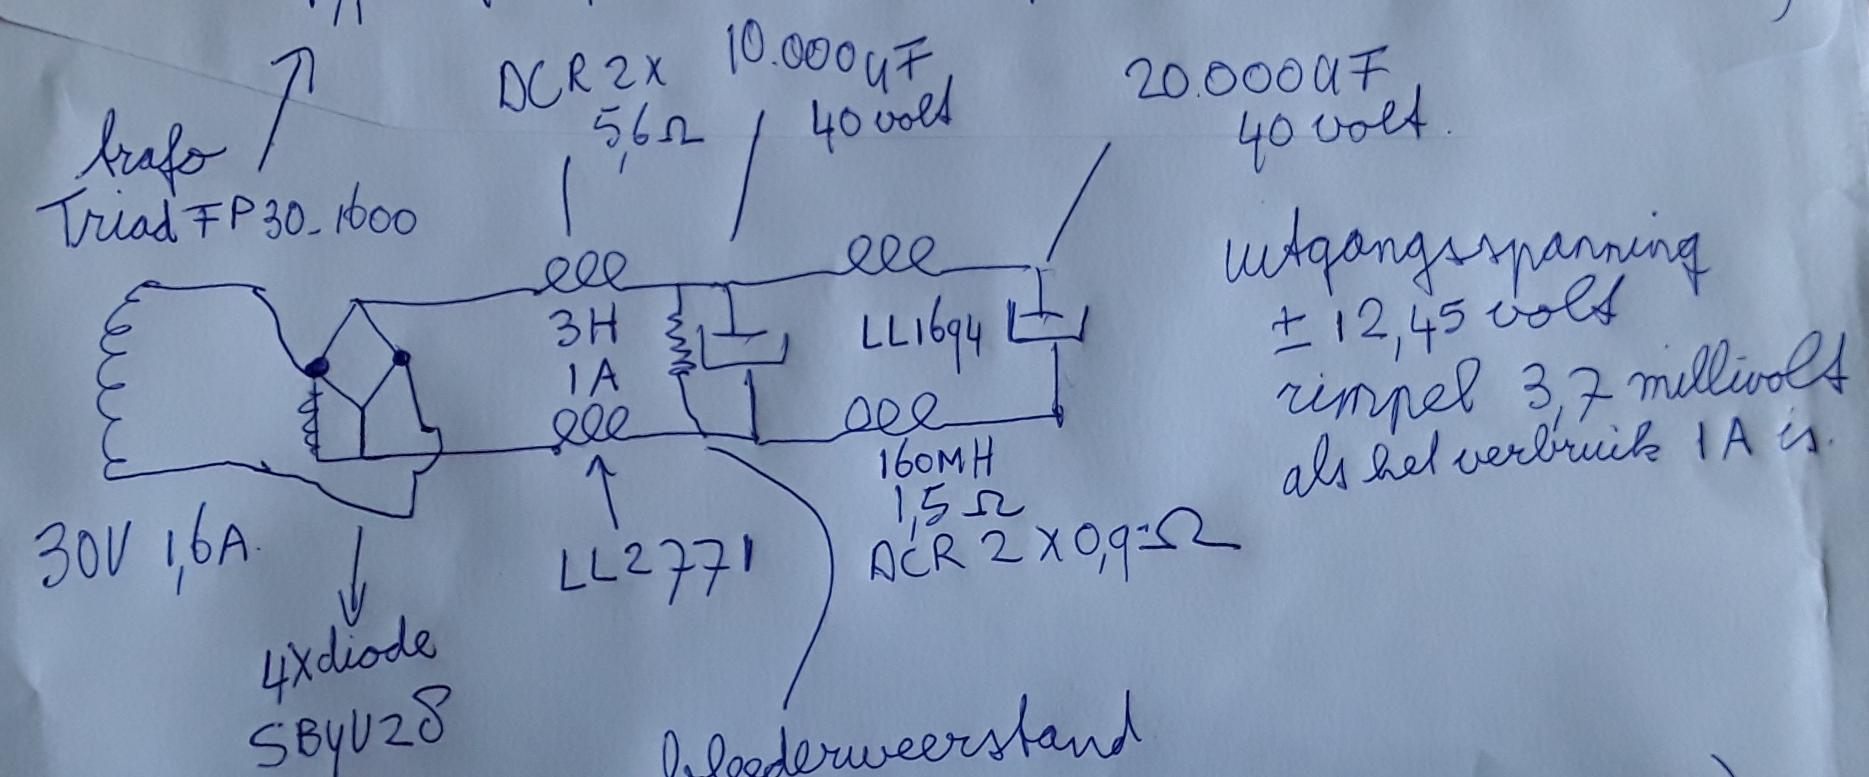 DCR 2X
5,6Ω
10.000uF
40 volt
20.000uF
40 volt.
trafo
Triad FP30-1600
3H
1A
LL1694
uitgangsspanning
± 12,45 volt
rimpel 3,7 millivolt
als het verbruik 1A is.
160MH
1,5Ω
DCR 2X0,9Ω
30V 1,6A.
LL2771
4xdiode
SBYV28
bleederweerstand